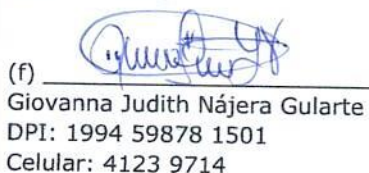 (f)
Giovanna Judith Nájera Gularte
DPI: 1994 59878 1501
Celular: 4123 9714